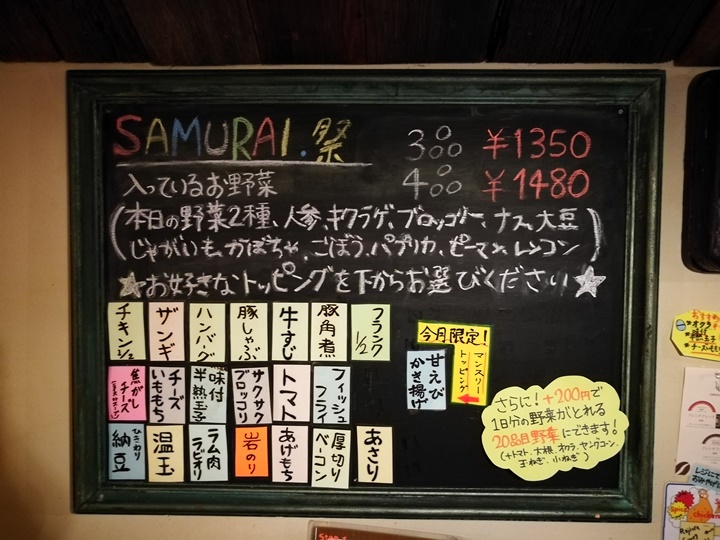 SAMURAI.祭
3oo ¥1350
4oo ¥1480
入っているお野菜
(本日の野菜2種、人参、キクラゲ、ブロッコリー、ナス、大豆
じゃがいも、かぼちゃ、ごぼう、パプリカ、ピーマン、レンコン)
★お好きなトッピングを下からお選びください★
チキン1/2
ザンギ
ハンバグ
豚しゃぶ
牛すじ
豚角煮
フランク1/2
焦がし
チーズ
チーズ
いももち
味付
半熟玉子
サクサク
ブロッコリ
トマト
フィッシュ
フライ
ひきわり
納豆
温玉
ラム肉
ラビオリ
岩のり
あげもち
厚切り
ベーコン
あさり
今月限定!
甘えび
かき揚げ
マンスリー
トッピング
さらに!+200円で
1日分の野菜がとれる
20品目野菜にできます!
(+トマト、大根、オクラ、ヤングコーン、
玉ねぎ、小ねぎ)
おすすめ
オクラ
チーズ